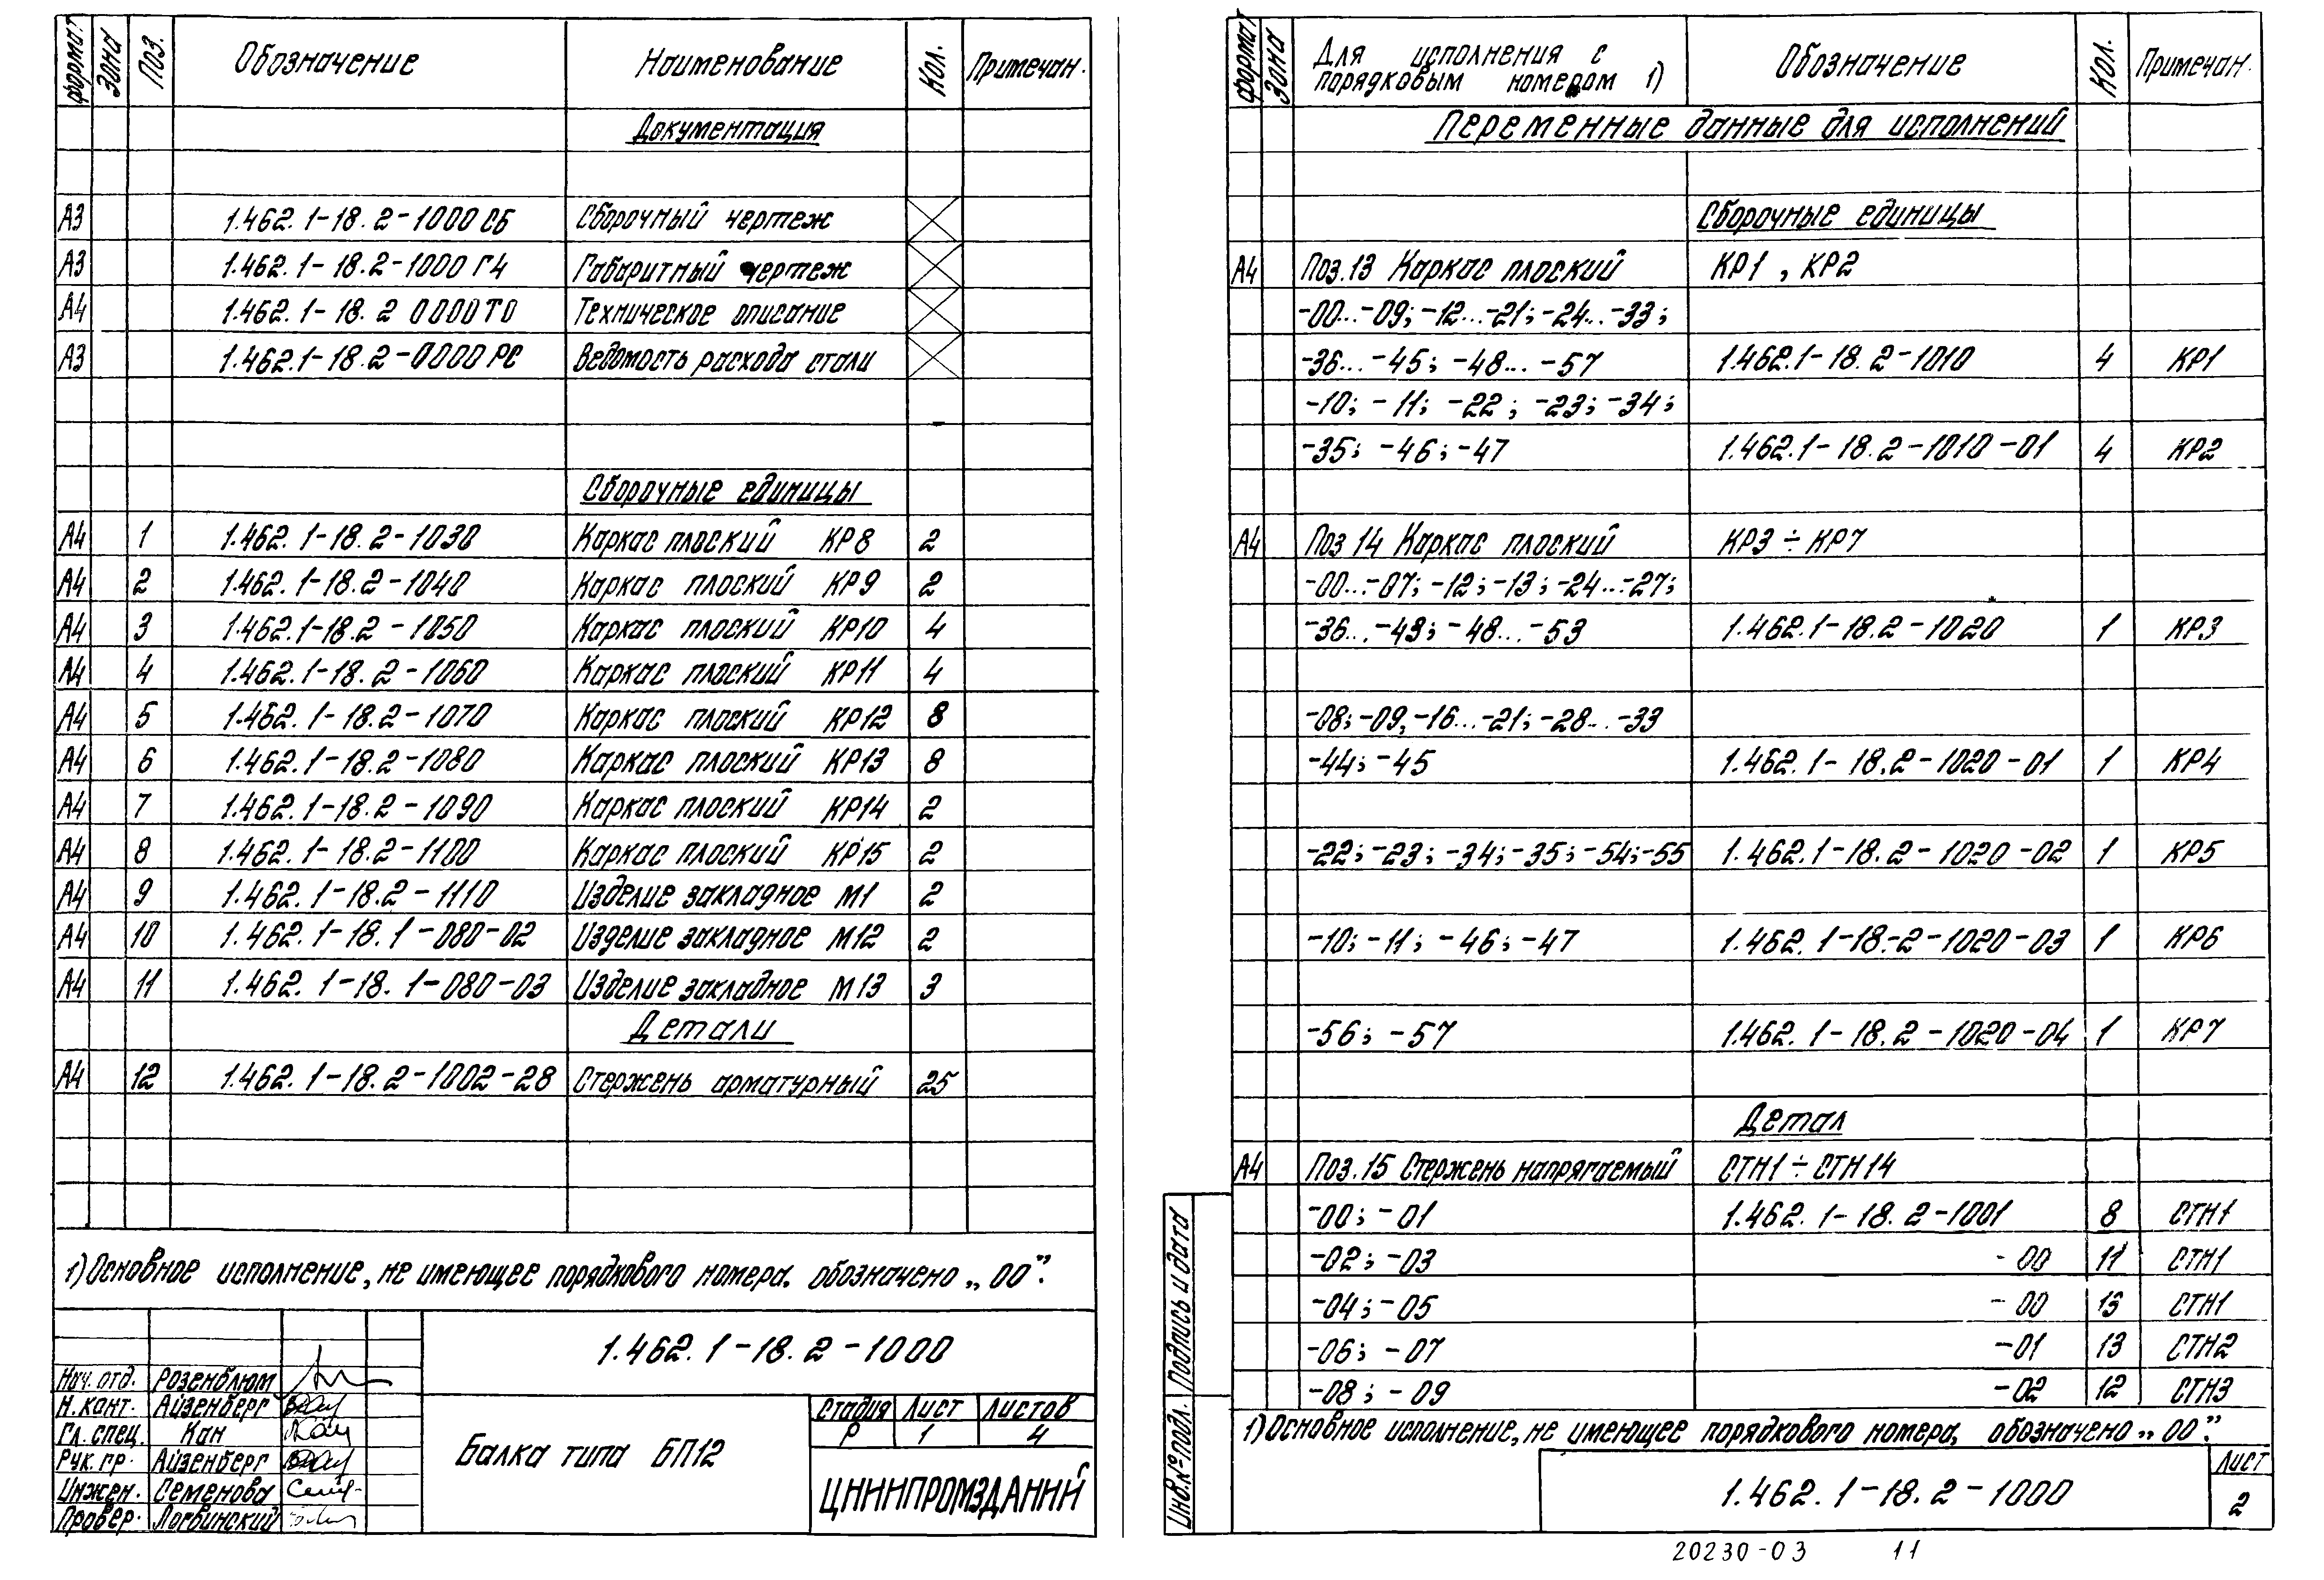 формат Зона Поз. Обозначение Наименование Кол. Примечан.
Документация
А3 1.462.1-18.2-1000 СБ Сборочный чертеж
А3 1.462.1-18.2-1000 ГЧ Габаритный чертеж
А4 1.462.1-18.2 0000ТО Техническое описание
А3 1.462.1-18.2-0000 РС Ведомость расхода стали
Сборочные единицы
А4 1 1.462.1-18.2-1030 Каркас плоский КР8 2
А4 2 1.462.1-18.2-1040 Каркас плоский КР9 2
А4 3 1.462.1-18.2-1050 Каркас плоский КР10 4
А4 4 1.462.1-18.2-1060 Каркас плоский КР11 4
А4 5 1.462.1-18.2-1070 Каркас плоский КР12 8
А4 6 1.462.1-18.2-1080 Каркас плоский КР13 8
А4 7 1.462.1-18.2-1090 Каркас плоский КР14 2
А4 8 1.462.1-18.2-1100 Каркас плоский КР15 2
А4 9 1.462.1-18.2-1110 Изделие закладное М1 2
А4 10 1.462.1-18.1-080-02 Изделие закладное М12 2
А4 11 1.462.1-18.1-080-03 Изделие закладное М13 3
Детали
А4 12 1.462.1-18.2-1002-28 Стержень арматурный 25
1) Основное исполнение, не имеющее порядкового номера. обозначено „00”.
1.462.1-18.2-1000
Нач. отд. Розенблюм
Н. конт. Айзенберг
Гл. спец. Кан
Рук. гр. Айзенберг
Инжен. Семенова
Провер. Логвинский
Балка типа БП12
Стадия Лист Листов
Р 1 4
ЦНИИПРОМЗДАНИЙ
формат Зона Для исполнения с порядковым номером 1) Обозначение Кол. Примечан.
Переменные данные для исполнений
Сборочные единицы
А4 Поз.13 Каркас плоский КР1, КР2
-00...-09; -12...-21; -24...-33;
-36...-45; -48...-57 1.462.1-18.2-1010 4 КР1
-10; -11; -22; -23; -34;
-35; -46; -47 1.462.1-18.2-1010-01 4 КР2
А4 Поз 14 Каркас плоский КР3 ÷ КР7
-00...-07; -12; -13; -24...-27;
-36...-43; -48...-53 1.462.1-18.2-1020 1 КР3
-08; -09, -16...-21; -28...-33
-44; -45 1.462.1-18.2-1020-01 1 КР4
-22; -23; -34; -35; -54; -55 1.462.1-18.2-1020-02 1 КР5
-10; -11; -46; -47 1.462.1-18.-2-1020-03 1 КР6
-56; -57 1.462.1-18.2-1020-04 1 КР7
Детал
А4 Поз.15 Стержень напрягаемый СТН1 ÷ СТН14
-00; -01 1.462.1-18.2-1001 8 СТН1
-02; -03 -00 11 СТН1
-04; -05 -00 13 СТН1
-06; -07 -01 13 СТН2
-08; -09 -02 12 СТН3
1) Основное исполнение, не имеющее порядкового номера, обозначено „00”.
Инв.№подл. Подпись и дата
1.462.1-18.2-1000
Лист
2
20230-03 11